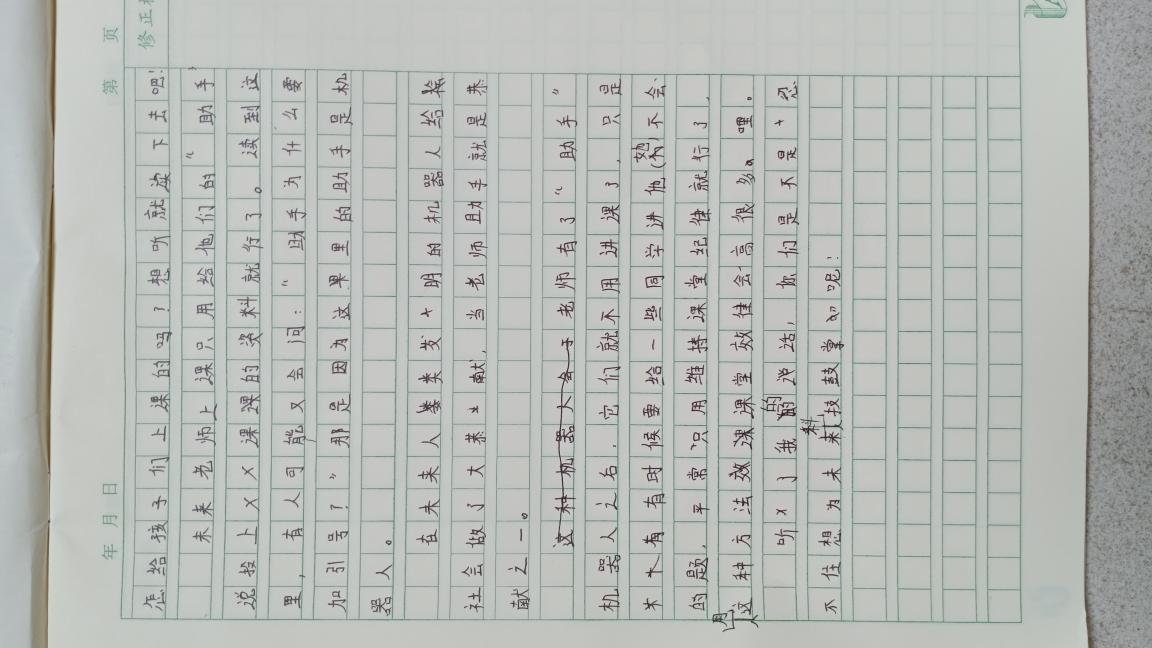 年 月 日 第 页
怎给孩子们上课的吗？想听就读下去吧！
未来老师上课只用给他们的“助手”
说投上××课课的资料就行了。读到这
里，有人可能又会问：“助手为什么要
加引号？”那是因为这里的助手是机
器人。
在未来人类发明的机器人给
社会做了大恭献，当老师助手就是恭
献之一。
这种机器人会于老师有了“助手”
机器人之后，它们就不用讲课了，只是
有时候要给一些同学讲他不会
的题，平常只用维持课堂纪律就行了，
用这种方法效课课堂效律会高很多。嘿。
听×了我的话，你们是不是忍
不住想为未来科技鼓掌呢！
修正